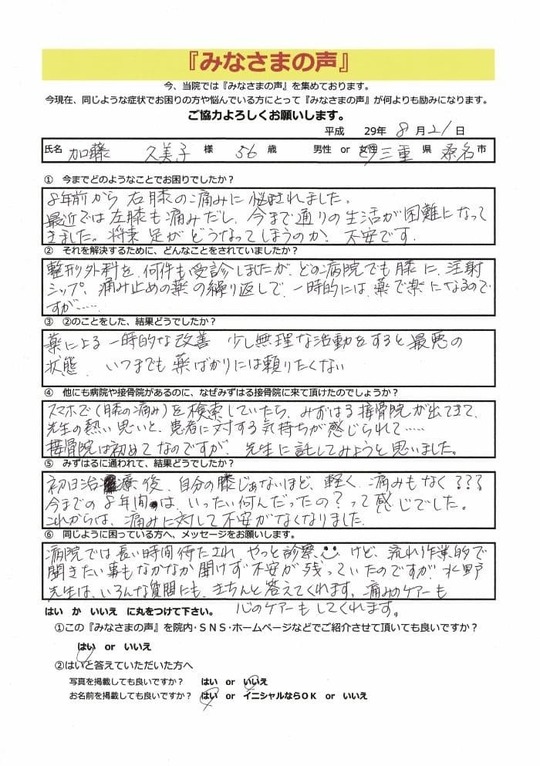 『みなさまの声』
今、当院では『みなさまの声』を集めております。
今現在、同じような症状でお困りの方や悩んでいる方にとって『みなさまの声』が何よりも励みになります。
ご協力よろしくお願いします。
平成 29年 8月 21日
氏名 加藤 久美子 様 56 歳 男性 or 女性 三重 県 桑名 市
① 今までどのようなことでお困りでしたか？
8年前から 右膝の痛みに 悩まされました。
最近では左膝も痛みだし、今まで通りの生活が困難になって
きました。将来 足がどうなってしまうのか、不安です.
② それを解決するために、どんなことをされていましたか？
整形外科を 何件も受診しましたが、どの病院でも膝に 注射
シップ、痛み止めの薬の繰り返しで、一時的には 薬で楽になるので
すが……
③ ②のことをした、結果どうでしたか？
薬による 一時的な改善 少し無理な活動をすると最悪の
状態. いつまでも 薬ばかりには頼りたくない
④ 他にも病院や接骨院があるのに、なぜみずはる接骨院に来て頂けたのでしょうか？
スマホで(膝の痛み)を検索していたら、みずはる接骨院が出てきて、
先生の熱い思いと、患者に対する気持ちが感じられて……
接骨院は初めてなのですが、先生に託してみようと思いました。
⑤ みずはるに通われて、結果どうでしたか？
初日治療後、自分の膝じゃないほど、軽く、痛みもなく？？？
今までの8年間は、いったい何んだったの？って感じでした。
これからは、痛みに対して不安がなくなりました.
⑥ 同じように困っている方へ、メッセージをお願いします。
病院では長い時間待たされ、やっと診察、けど、流れ作業的で
聞きたい事もなかなか聞けず不安が残っていたのですが 水野
先生は、いろんな質問にも、きちんと答えてくれます。痛みのケアーも
心のケアーもしてくれます。
はい か いいえ に丸をつけて下さい。
①この『みなさまの声』を院内・SNS・ホームページなどでご紹介させて頂いても良いですか？
はい or いいえ
②はいと答えていただいた方へ
写真を掲載しても良いですか？ はい or いいえ
お名前を掲載しても良いですか？ はい or イニシャルならOK or いいえ